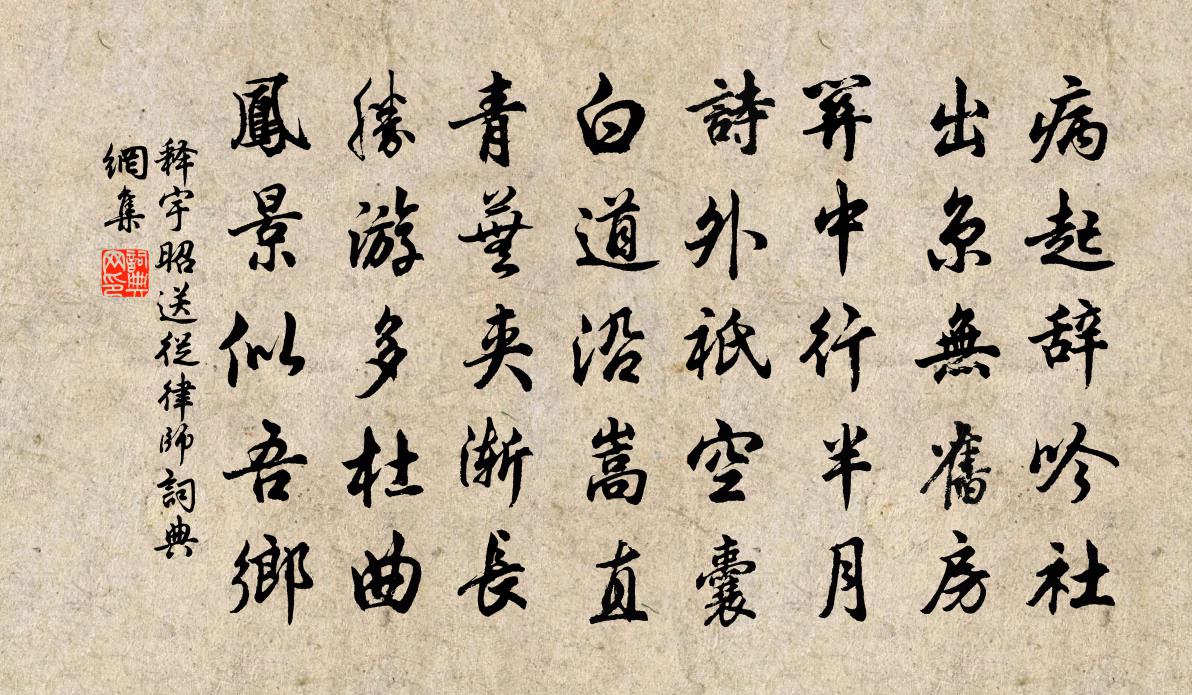 病起辞吟社
出京無舊房
關中行半月
詩外祇空囊
白道沿嵩直
青蕪夾漸長
勝游多杜曲
鳳景似吾鄉
释宇昭送從律師詞典
網集
詞典
网印